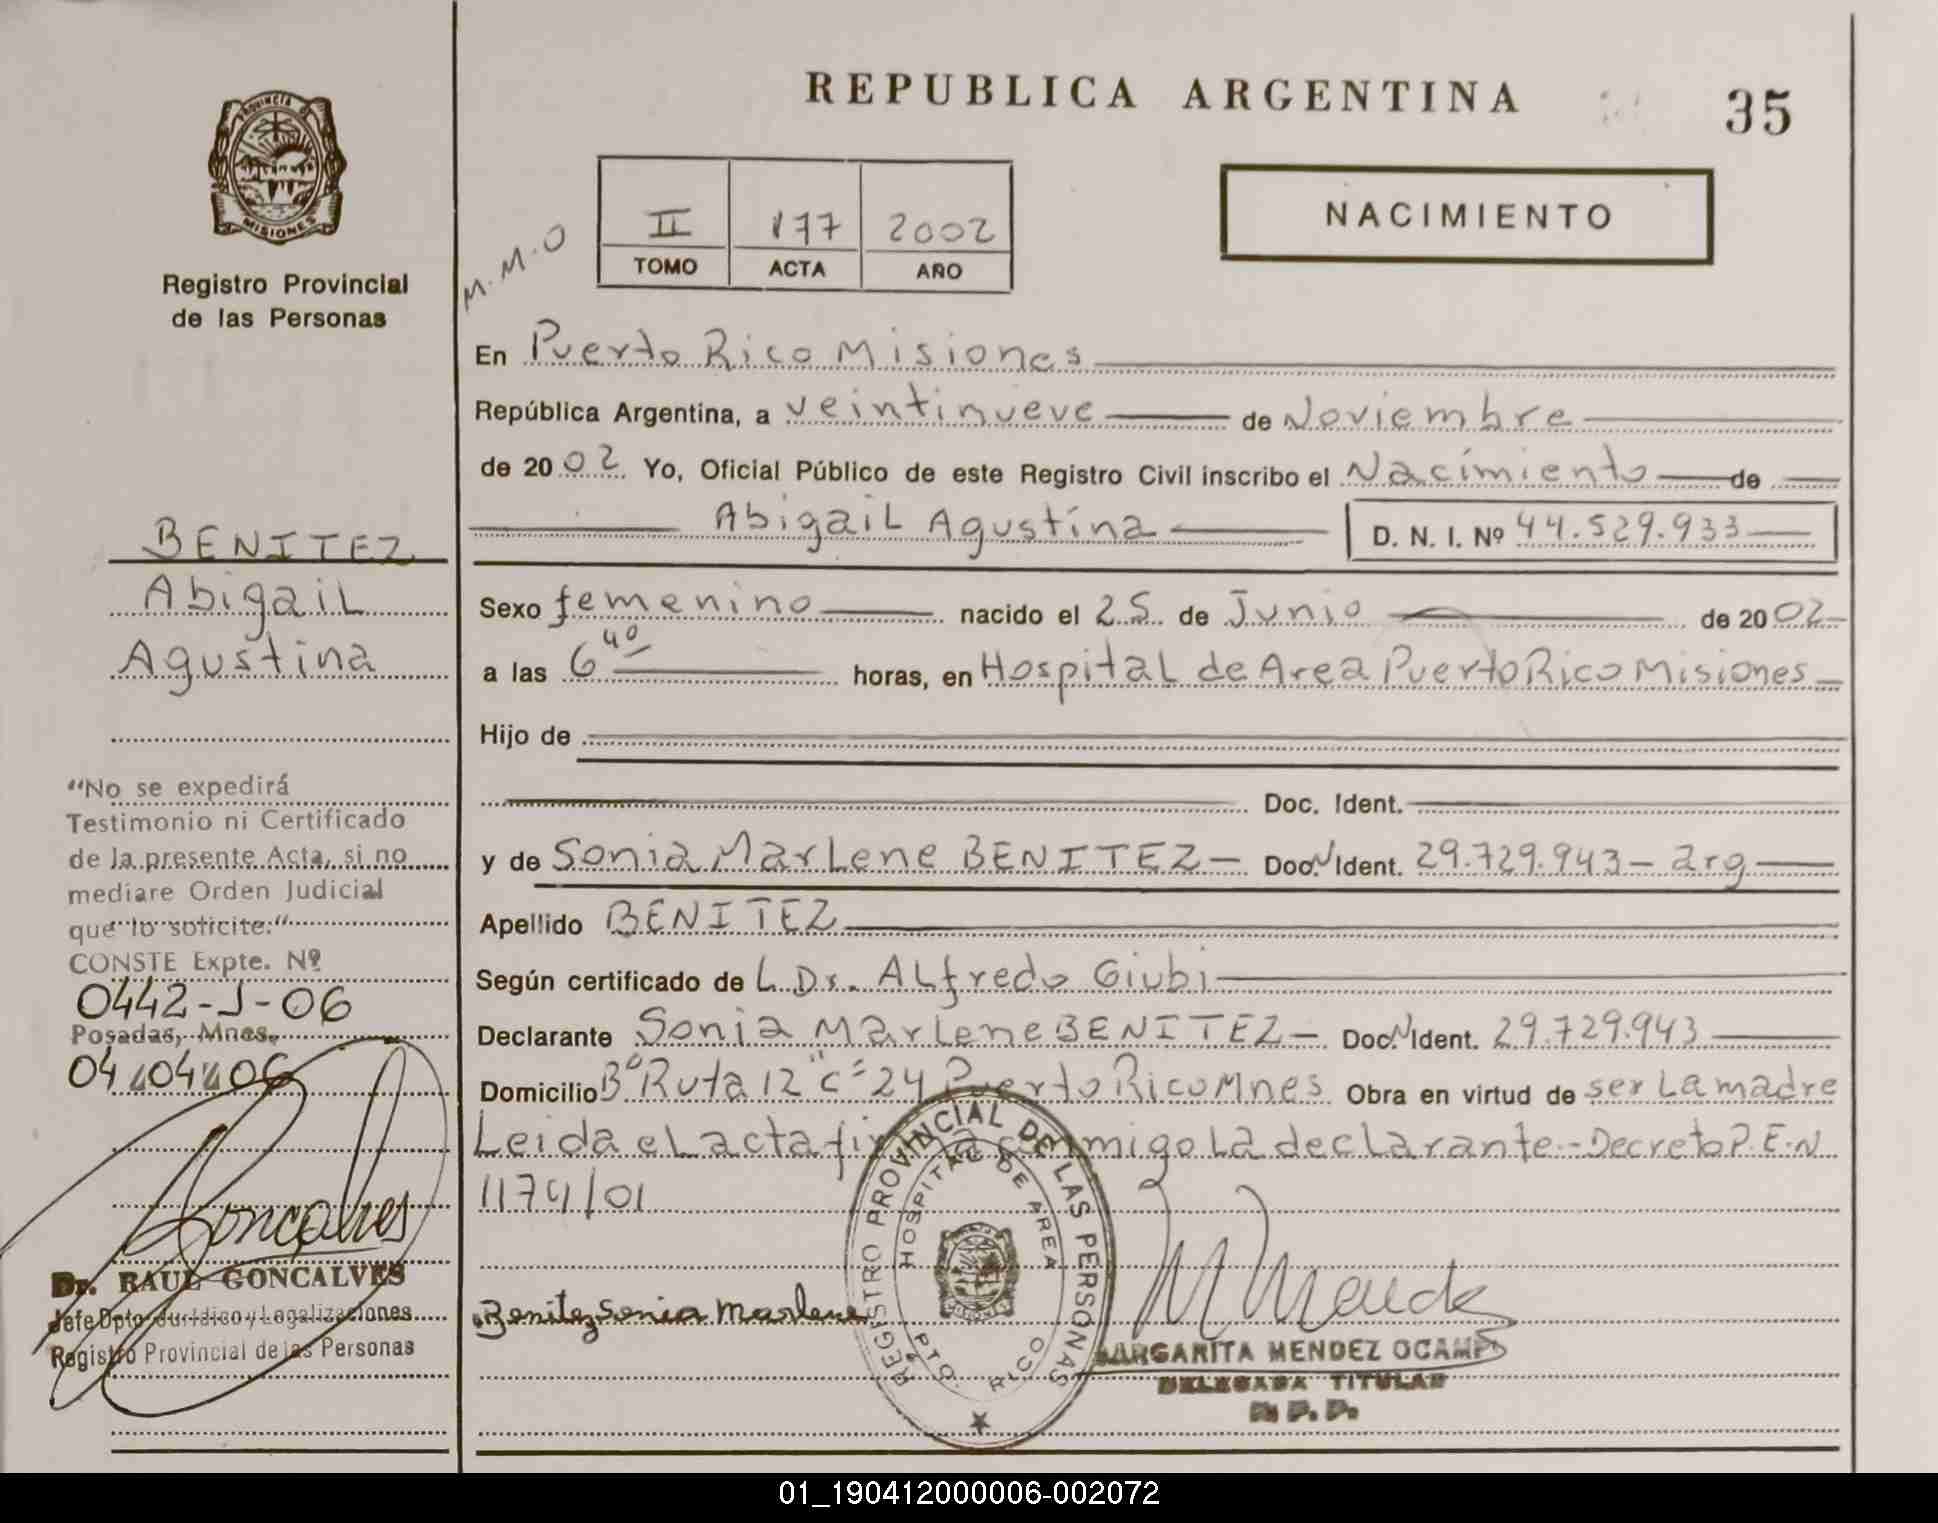 REPUBLICA ARGENTINA
35
PROVINCIA DE
MISIONES
Registro Provincial
de las Personas
M.M.O
II 177 2002
TOMO ACTA AÑO
NACIMIENTO
En Puerto Rico Misiones
República Argentina, a veintinueve de Noviembre
de 2002 Yo, Oficial Público de este Registro Civil inscribo el Nacimiento de
Abigail Agustina D. N. I. Nº 44.529.933
Sexo femenino nacido el 25 de Junio de 2002
a las 6 40 horas, en Hospital de Area Puerto Rico Misiones
Hijo de
Doc. Ident.
y de Sonia Marlene BENITEZ Doc. N Ident. 29.729.943 - arg
Apellido BENITEZ
Según certificado de L Dr. Alfredo Giubi
Declarante Sonia Marlene BENITEZ Doc. N Ident. 29.729.943
Domicilio Bº Ruta 12 "c" 24 Puerto Rico Mnes Obra en virtud de ser La madre
Leida el acta firma conmigo La declarante - Decreto P.E.N
1174/01
Benitez Sonia Marlene
REGISTRO PROVINCIAL DE LAS PERSONAS
HOSPITAL DE AREA
PTO. RICO
MARGARITA MENDEZ OCAMPO
DELEGADA TITULAR
R.P.P.
BENITEZ
Abigail
Agustina
"No se expedirá
Testimonio ni Certificado
de la presente Acta, si no
mediare Orden Judicial
que lo solicite."
CONSTE Expte. Nº
0442-J-06
Posadas, Mnes.
04/04/06
Goncalves
Dr. RAUL GONCALVES
Jefe Dpto. Jurídico y Legalizaciones
Registro Provincial de las Personas
01_190412000006-002072